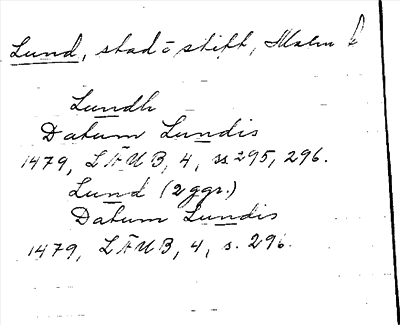 Lund, stad o stift, Malm
Lundh
Datum Lundis
1479, LÄUB, 4, ss 295, 296.
Lund (2 ggr.)
Datum Lundis
1479, LÄUB, 4, s. 296.